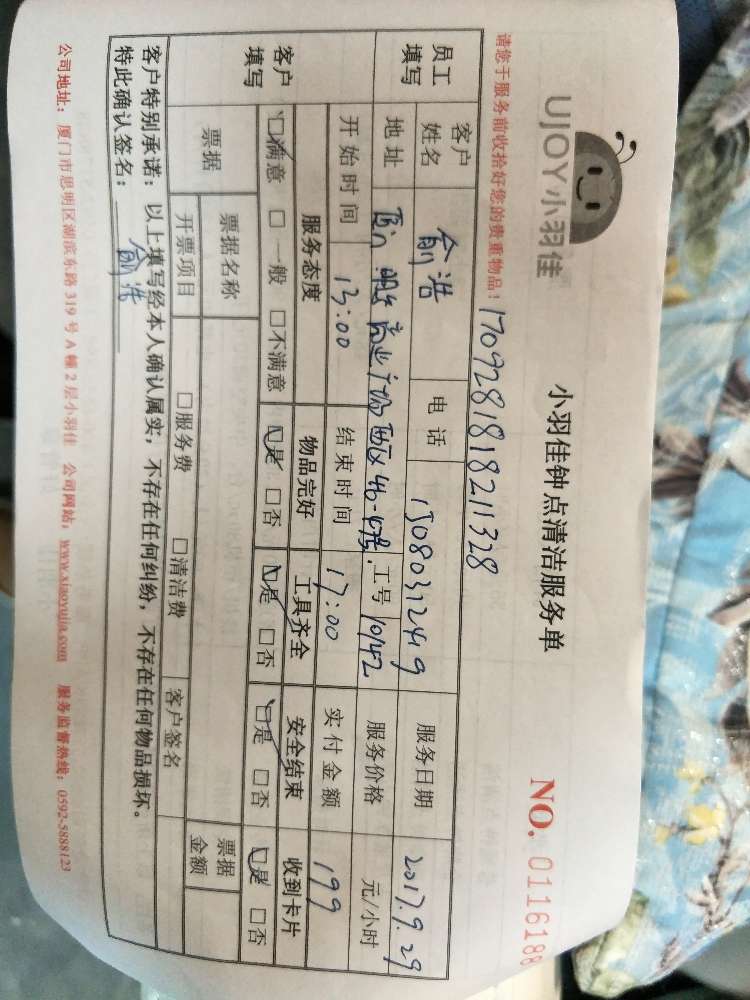 UJOY小羽佳
小羽佳钟点清洁服务单
NO. 0116188
请您于服务前收拾好您的贵重物品！
170928181821328
员工填写
客户姓名 俞浩 电话 15080312419 服务日期 2017.9.29
地址 商业广场西区46-47号 工号 10142 服务价格 元/小时
开始时间 13:00 结束时间 17:00 实付金额 199
客户填写
服务态度 物品完好 工具齐全 安全结束 收到卡片
☑满意 □一般 □不满意 ☑是 □否 ☑是 □否 ☑是 □否 ☑是 □否
票据 票据名称 票据金额
开票项目 □服务费 □清洁费 客户签名
客户特别承诺：以上填写经本人确认属实，不存在任何纠纷，不存在任何物品损坏。
特此确认签名： 俞浩
公司地址：厦门市思明区湖滨东路319号A幢2层小羽佳 公司网站：www.xiaoyujia.com 服务监督热线：0592-5888123